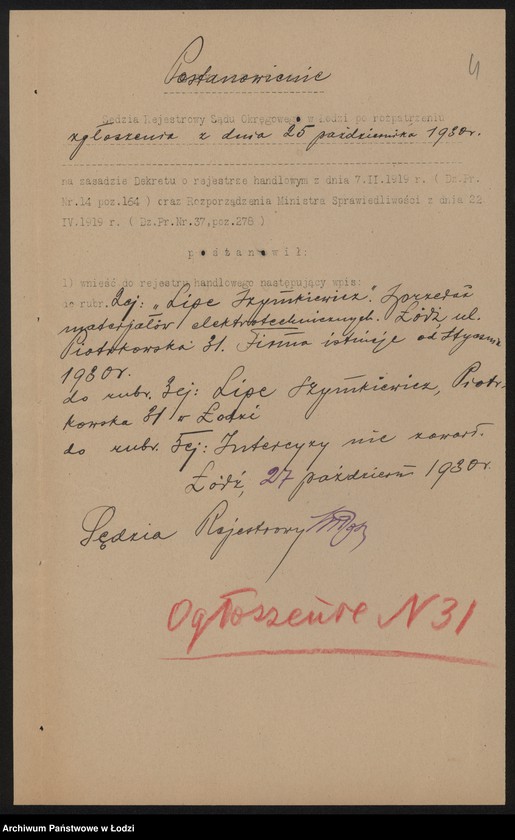 4
Postanowienie
Sędzia Rejestrowy Sądu Okręgowego w Łodzi po rozpatrzeniu
zgłoszenia z dnia 25 października 1930r.
na zasadzie Dekretu o rejestrze handlowym z dnia 7.II.1919 r. ( Dz.Pr.
Nr.14 poz.164 ) oraz Rozporządzenia Ministra Sprawiedliwości z dnia 22
IV.1919 r. ( Dz.Pr.Nr.37,poz.278 )
postanowił:
1) wnieść do rejestru handlowego następujący wpis:
do rubr. 2ej: „Lipe Szymkiewicz". Sprzedaż
materjałów elektrotechnicznych. Łódź ul.
Piotrkowska 31. Firma istnieje od stycznia
1930r.
do rubr. 3ej: Lipe Szymkiewicz, Piotr-
kowska 31 w Łodzi
do rubr. 5ej: Intercyzy nie zawarł.
Łódź, 27 październ 1930r.
Sędzia Rejestrowy
Ogłoszenie N 31
Archiwum Państwowe w Łodzi